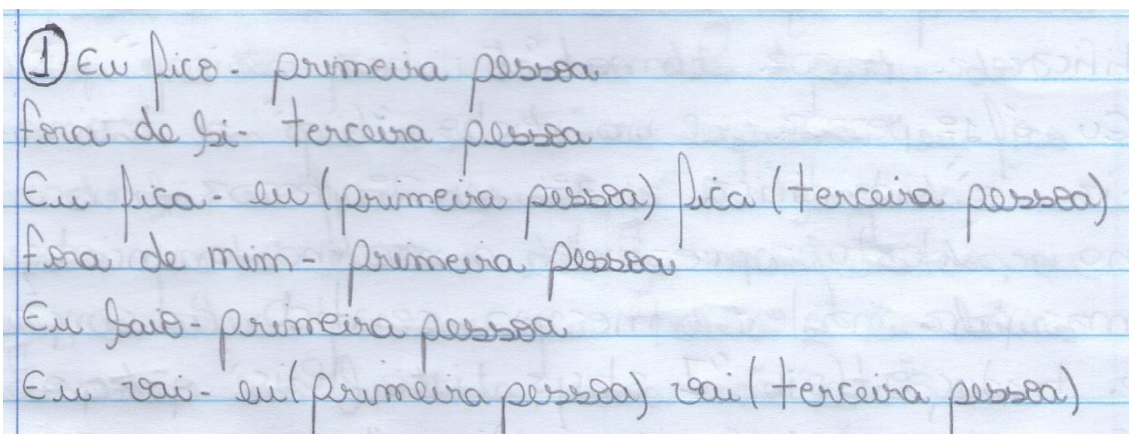 1 Eu fico - primeira pessoa
fora de si - terceira pessoa
Eu fica - eu (primeira pessoa) fica (terceira pessoa)
fora de mim - primeira pessoa
Eu saio - primeira pessoa
Eu vai - eu (primeira pessoa) vai (terceira pessoa)